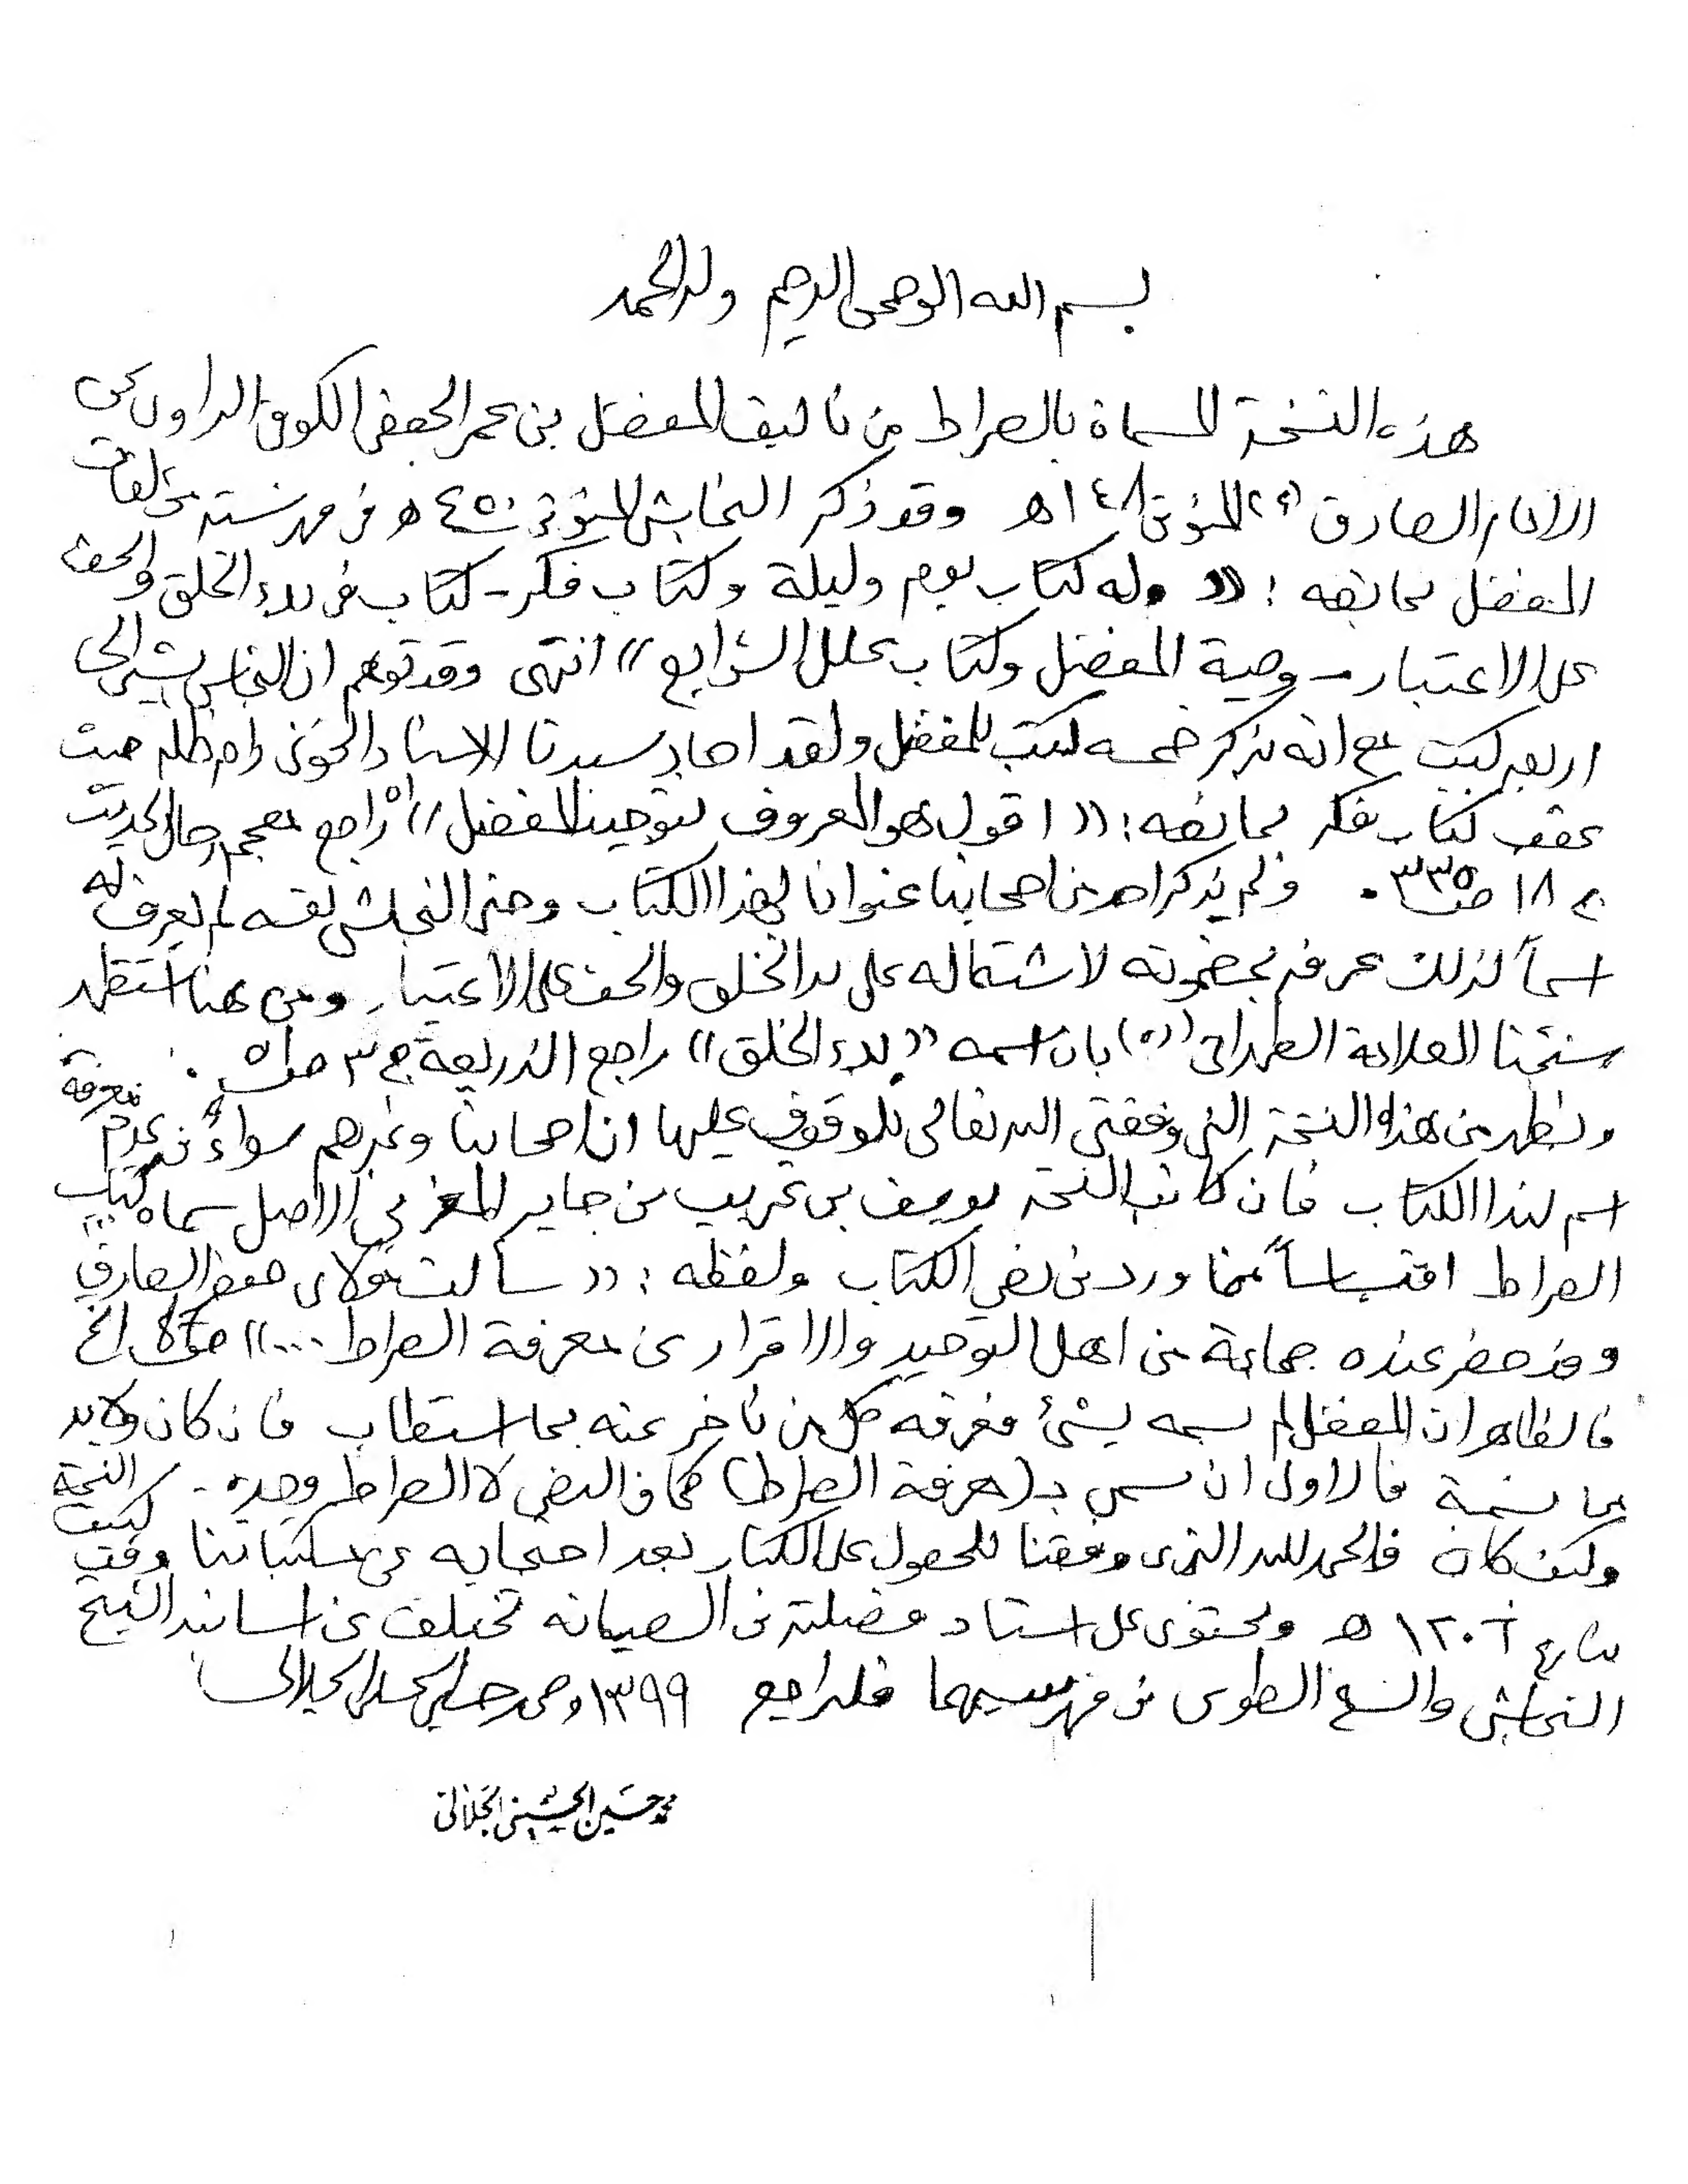 بسم الله الرحمن الرحيم وله الحمد
هذه النسخة المسماة بالصراط من تأليف المفضل بن عمر الجعفي الكوفي الراوي عن
الامام الصادق (ع) المتوفى ١٤٨ هـ وقد ذكر النجاشي المتوفى ٤٥٠ هـ في فهرسته مؤلفات
المفضل بما نصه : «وله كتاب يوم وليلة وكتاب فكر - كتاب في بدء الخلق والحث
على الاعتبار - وصية المفضل وكتاب علل الشرايع» انتهى وقد توهم ان النجاشي يشير الى
اربعة كتب مع انه يذكر خمسه كتب للمفضل ولقد اجاد سيدنا الاستاذ الخوئي دام ظله حيث
عقب كتاب فكر بما نصه : «اقول هو المعروف بتوحيد المفضل» اه راجع معجم رجال الحديث
ج ١٨ ص ٣٣٥ . ولم يذكر احد من اصحابنا عنوانا لهذا الكتاب وحتى النجاشي نفسه لم يعرف له
اسماً لذلك عرفه بمضمونه لاشتماله على بدء الخلق والحث على الاعتبار ومن هنا استظهر
شيخنا العلامة الطهراني (ره) بان اسمه «بدء الخلق» راجع الذريعة ج ٣ ص
ويظهر من هذه النسخة التي وفقني الله تعالى للوقوف عليها ان اصحابنا وغيرهم سواء في عدم معرفة
اسم لهذا الكتاب فان كاتب النسخة يوسف بن عريب بن جابر المغربي الاصل سماه كتاب
الصراط اقتباساً مما ورد في نص الكتاب ولفظه : «سألت مولاي جعفر الصادق
وقد حضر عنده جماعة من اهل التوحيد والاقرار عن معرفة الصراط ...» الخ
فالظاهر ان المفضل لم يسمه بشئ فعرفه كل من تأخر عنه بما استطاب فان كان ولابد
من تسمية فالاولى ان يسمى بـ (معرفة الصراط) كما في النص لا الصراط وحده .
وكيف كان فالحمد لله الذي وفقنا للحصول على الكتاب بعد احتجابه عن مكتباتنا وقد كتبت النسخة
بتاريخ ١٢٠٦ هـ ويحتوي على اسناد تختلف عن اسانيد الشيخ
النجاشي والشيخ الطوسي في فهرسيهما فليراجع ١٣٩٩ محمد حسين الحسيني الجلالي
محمد حسين الحسيني الجلالي